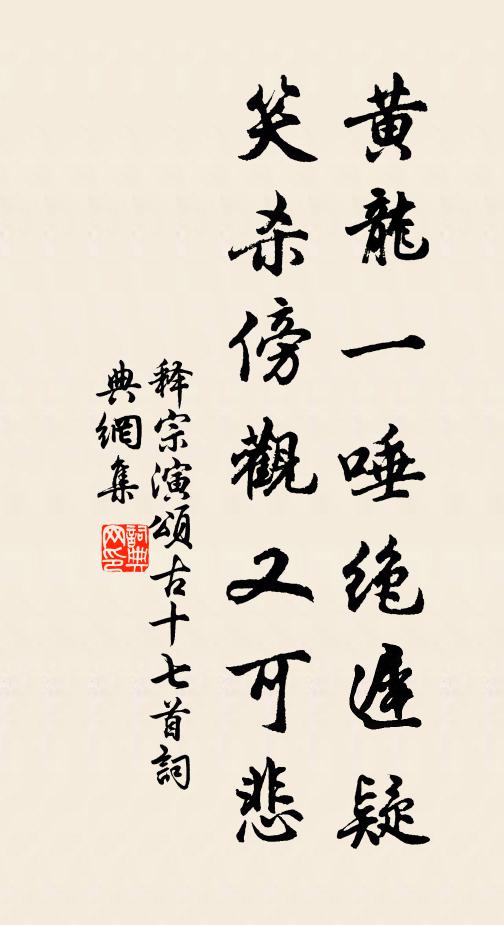 黄龍一唾绝遲疑
笑杀傍觀又可悲
释宗演頌古十七首詞
典網集
詞典網印